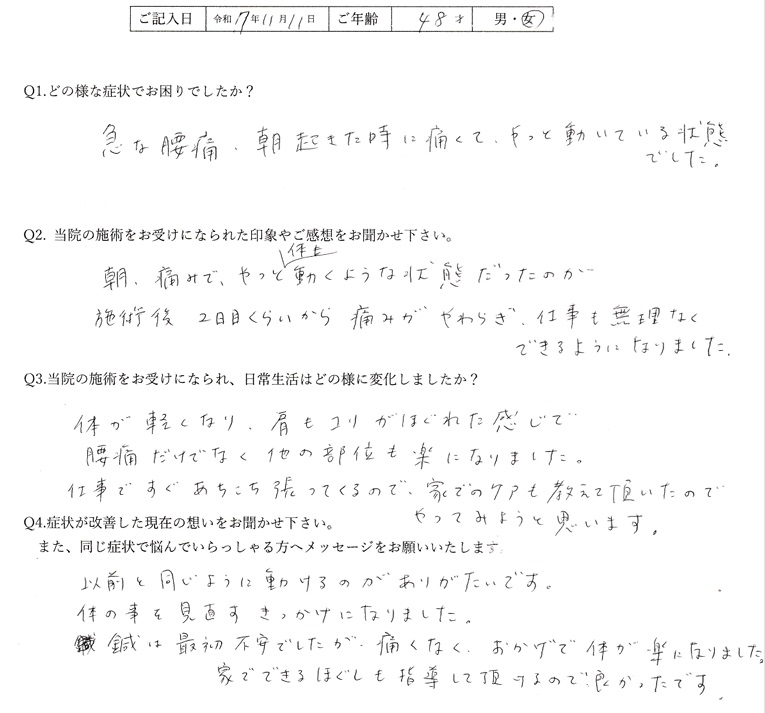 ご記入日 令和7年11月11日 ご年齢 48才 男・女
Q1.どの様な症状でお困りでしたか?
急な腰痛、朝起きた時に痛くて、やっと動いている状態
でした。
Q2. 当院の施術をお受けになられた印象やご感想をお聞かせ下さい。
朝、痛みで、やっと体を動くような状態だったのが
施術後 2日目くらいから 痛みが やわらぎ、仕事も無理なく
できるようになりました。
Q3.当院の施術をお受けになられ、日常生活はどの様に変化しましたか?
体が軽くなり、肩もコリがほぐれた感じで
腰痛だけでなく他の部位も楽になりました。
仕事ですぐあちこち張ってくるので、家でのケアも教えて頂いたので
やってみようと思います。
Q4.症状が改善した現在の想いをお聞かせ下さい。
また、同じ症状で悩んでいらっしゃる方へメッセージをお願いいたします
以前と同じように動けるのがありがたいです。
体の事を見直すきっかけになりました。
鍼は最初不安でしたが、痛くなく、おかげで体が楽になりました。
家でできるほぐしも指導して頂けるので良かったです。